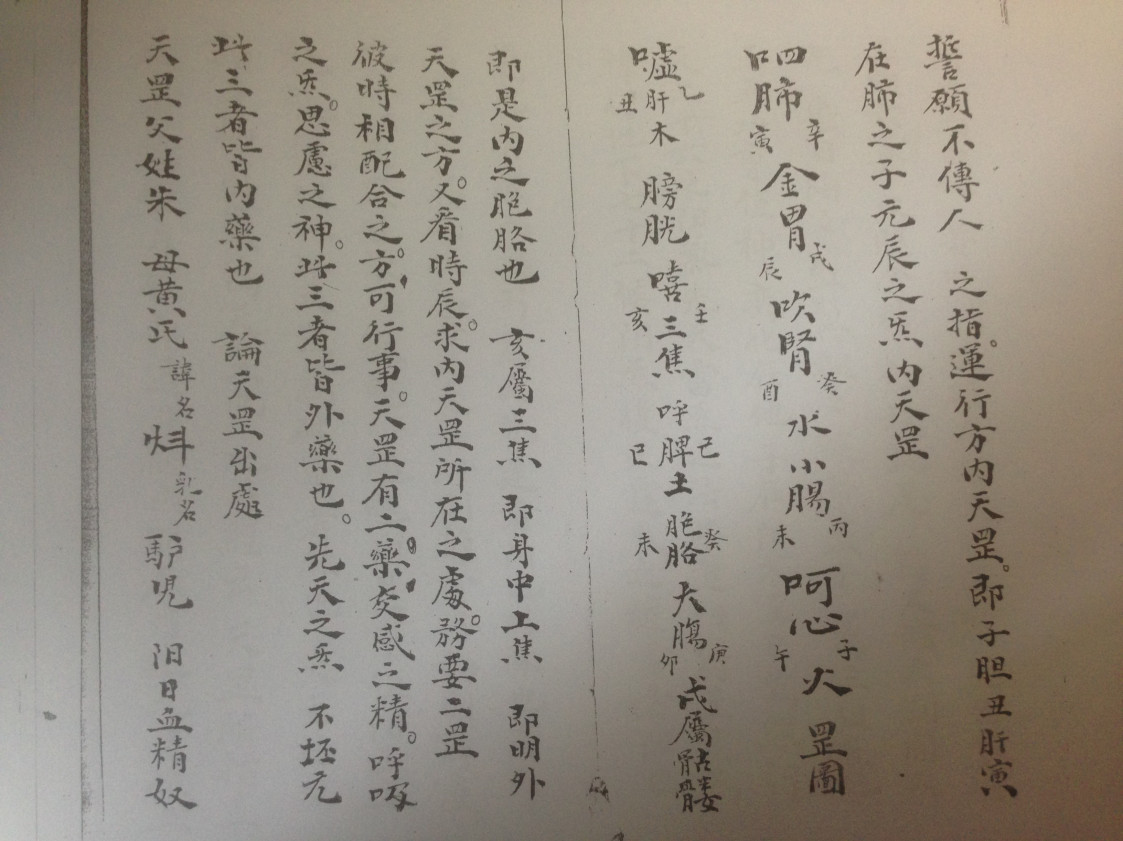 誓願不傳人 之指。運行方內天罡。即子胆丑肝寅
在肺之子元辰之炁內天罡
呬肺寅辛金胃辰戌吹腎酉癸水小腸未丙呵心午子火 罡圖
嘘肝丑乙木 膀胱 嘻亥壬三焦 呼脾巳己土胞胳未癸大腸卯庚戌屬骷髏
即是內之胞胳也 亥屬三焦 即身中上焦 即明外
天罡之方。又看時辰。求內天罡所在之處。務要二罡
彼時相配合之。方可行事。天罡有二藥交感之精。呼吸
之炁。思慮之神。此三者皆外藥也。先天之炁 不坯元
此三者皆內藥也 論天罡出處
天罡父姓朱 母黃氏諱名炓乳名馿児 汨日血精奴